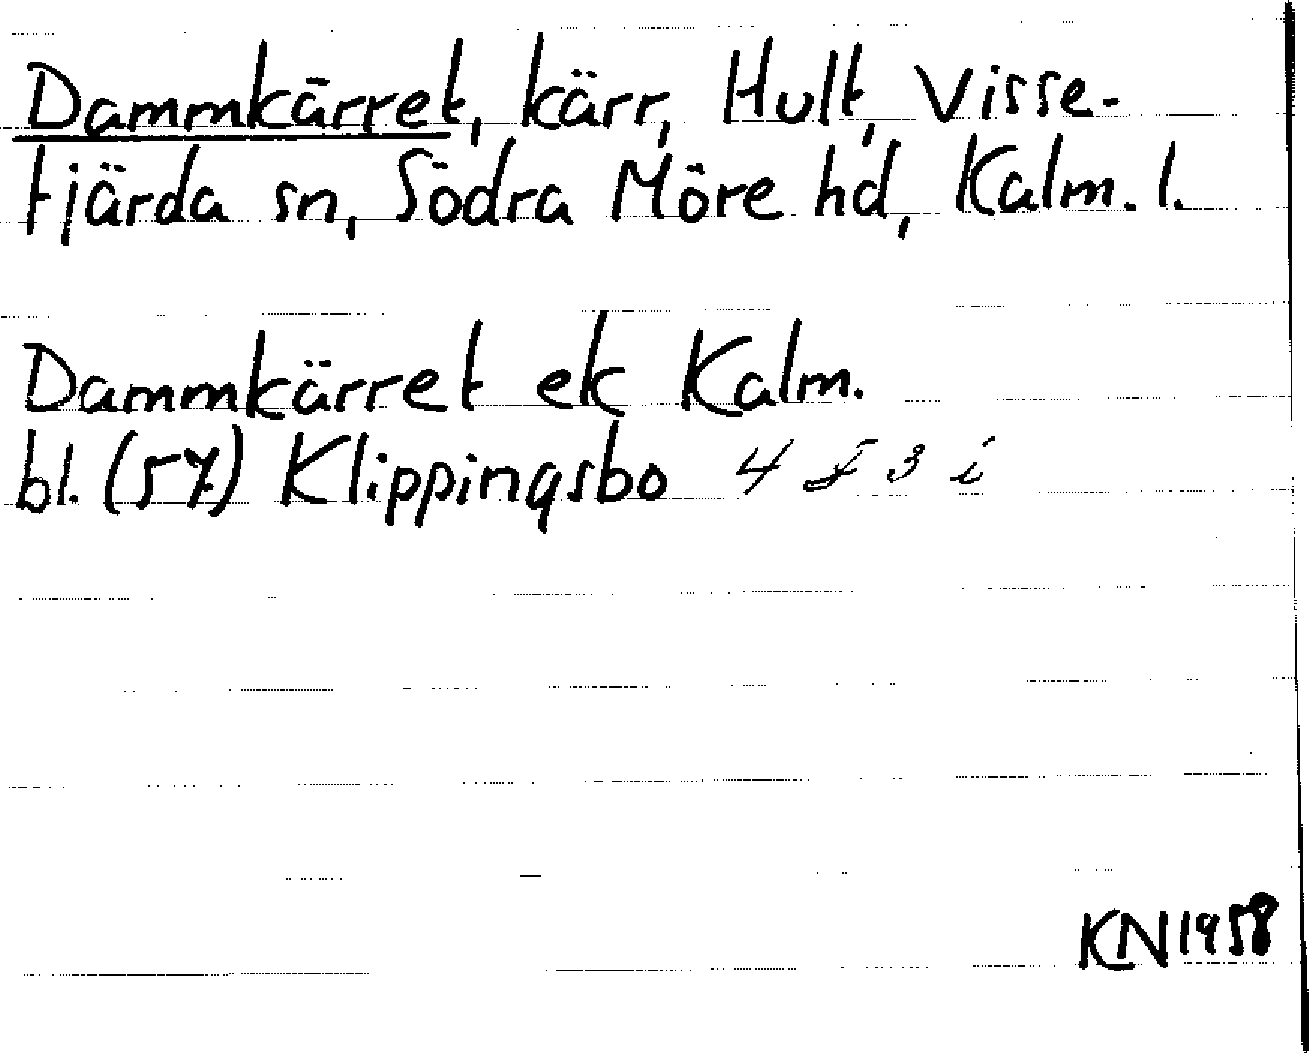 Dammkärret, kärr, Hult, Visse-
fjärda sn, Södra Möre hd, Kalm. l.
Dammkärret ek Kalm.
bl. (57) Klippingsbo 4 f 3 i
KN 1958